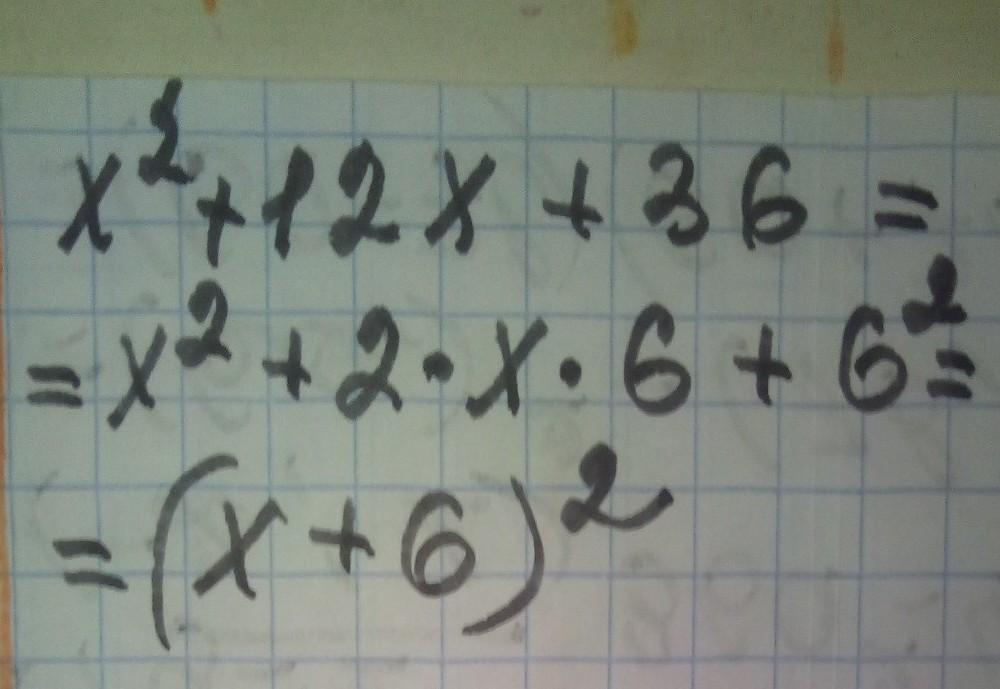 x² + 12x + 36 =
= x² + 2 · x · 6 + 6² =
= (x + 6)²